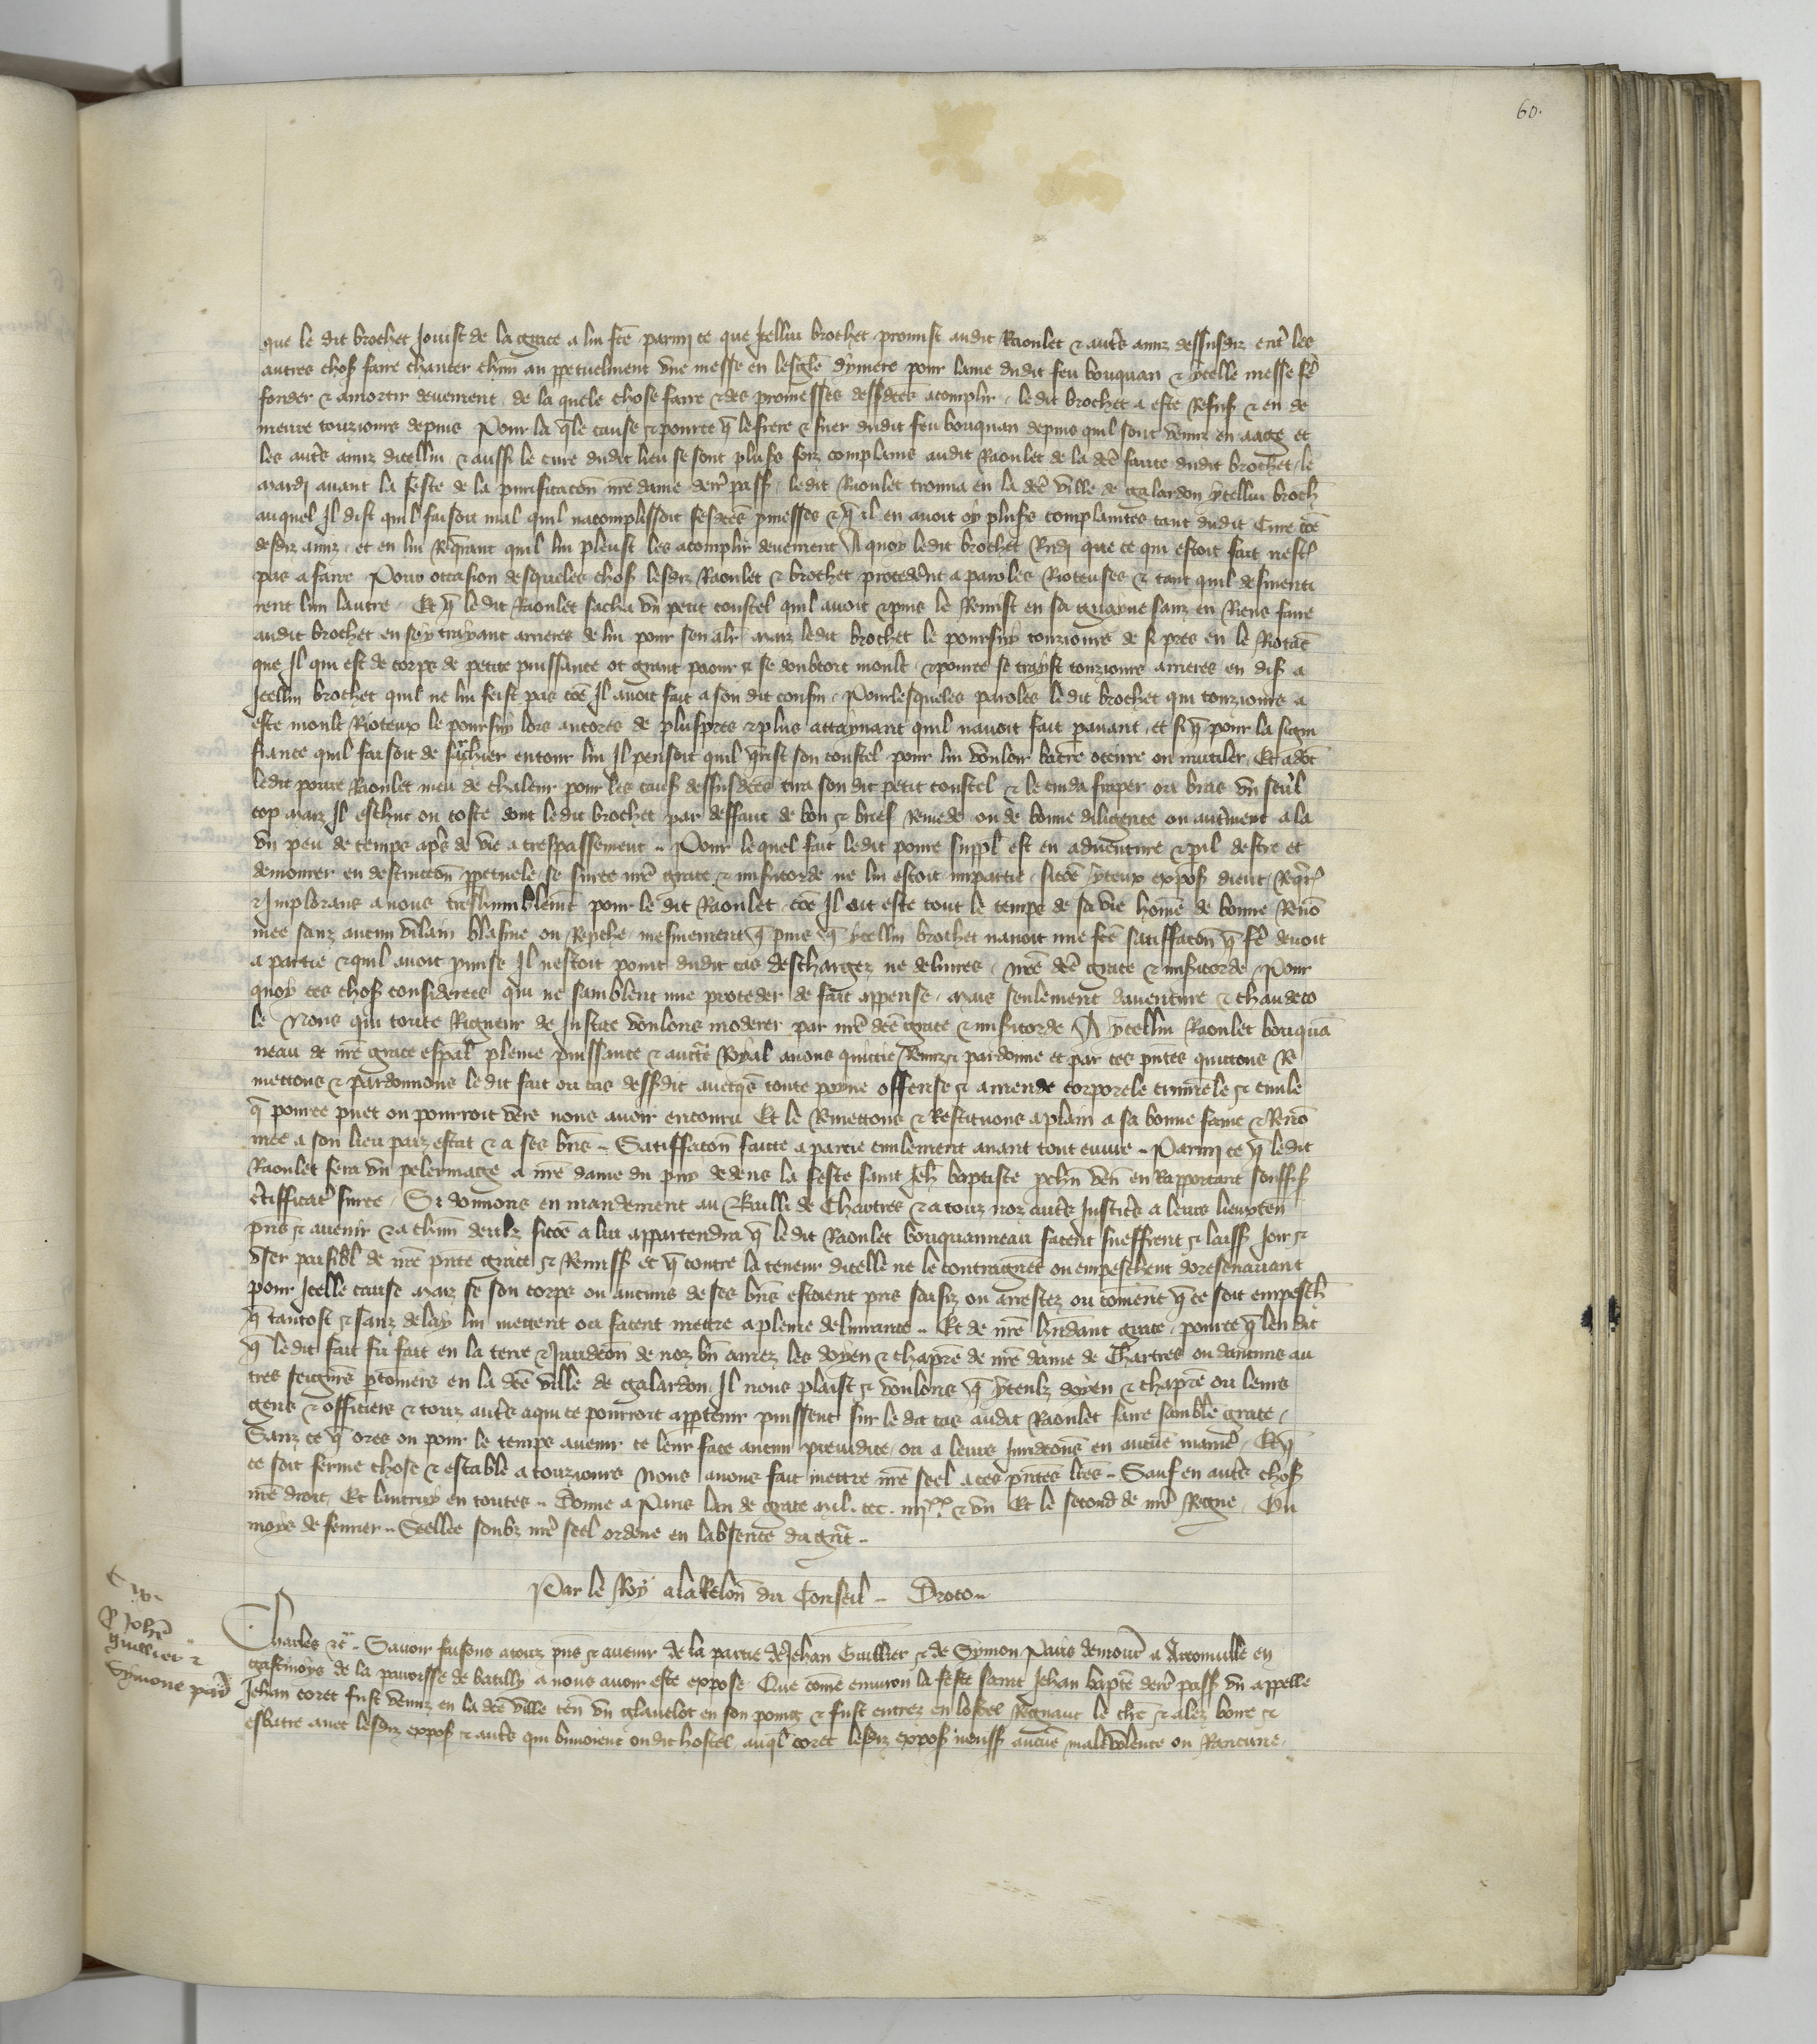 60.
que le dit brochet Jouist de la grace a lui fcē parmi ce que Jcellui brochet promist audit Raoulet & autˢ amis dessusdiz entˢ les
autres chosˢ faire chanter chūn an ppetuelment vne messe en lesglē dymere pour lame dudit feu bouquan & ycelle messe fē
fonder & amortir deuement, de la quele chose faire & des promesses dessdcēs acomplir, ledit brochet a este Refusˢ & en de
meure touzjours depuis Pour la qˡle cause & pource q̄ le frere & suer dudit feu bouquan depuis quil sont venuz en aage et
les autˢ amis dicellui & aussi le cure dudit lieu se sont plusˢ foiz complains audit Raoulet de la dcē faute dudit brochet, le
mardi auant la feste de la purificacōn nr̄e dame derˢ passˢ, ledit Raoulet trouua en la dcē ville de galardon ycellui broch̄
auquel Jl dist quil faisoit mal quil nacomplissoit sesdcēs pmesses & q̄ il en auoit oy plusˢ complaintes tant dudit Cure cōe
desdiz amis, et en lui Reqˢrant quil lui pleust les acomplir deuement A quoy ledit brochet Rndi que ce qui estoit fait nestˢ
pas a faire Pour occasion desqueles chosˢ lesdiz Raoulet & brochet procederēt a paroles Rioteuses & tant quil desmenti
rent lun lautre, Et q̄ le dit Raoulet sacha vn petit coustel quil auoit & puis le Remist en sa guayne sanz en Riens faire
audit brochet en soy trayant arrieres de lui pour sen alˢr maiz ledit brochet le poursuy touzjours de si pres en le Riotāt
que Jl qui est de corps de petite puissance ot grant paour & se doubtoit moult, & pource se trayst touzjours arrieres en disˢ a
Jcellui brochet quil ne lui feist pas cōe Jl auoit fait a son dit cousin, Pour lesqueles paroles le dit brochet qui touzjours a
este moult Rioteux le poursuy lors ancores de pluspres & plus attaynant quil nauoit fait pauant, et si q̄ pour la signi
fiance quil faisoit de sachier entour lui Jl pensoit quil qˢrist son coustel pour lui vouloir batre occirre ou mutiler, Et adōc
ledit poure Raoulet meu de chaleur pour les causˢ dessusdcēs tira son dit petit coustel & le cuida fraper ou bras vn seul
cop maiz Jl eschut ou coste dont ledit brochet par deffaut de bon & brief Remede ou de bonne diligence ou autˢment ala
vn peu de temps apˢs de vie a trespassement.. Pour lequel fait ledit poure supplˢ est en aduenture & pil destre et
demourer en destruccōn ppetuele, se surce nr̄e grace & misˢicorde ne lui estoit impartie, sicōe yceux exposˢ dient, Reqˢrˢ
& Jmplorans a nous treshumblemt̄ pour le dit Raoulet, cōe Jl ait este tout le temps de sa vie homē de bonne Renō
mee sanz aucun vilain blasme ou Repche mesmement q̄ puis q̄ ycellui brochet nauoit mie fcē satiffacōn q̄ fē deuoit
a partie & quil auoit pmise Jl nestoit point dudit cas deschargez ne deliures, nr̄e dcē grace & misˢicorde Pour
quoy ces chosˢ considerees qui ne samblent mie proceder de fait appense, mais seulement dauenture & chaudeco
le Nous qui toute Rigueur de Justice voulons moderer par nr̄e dcē grace & misˢicorde A ycellui Raoulet bouquā
neau de nr̄e grace espal pleine puissance & auctˢe Royal auons quictie Remis & pardonne et par ces pñtes quictons Re
mettons & pardonnons le dit fait ou cas dessdit auecqˢs toute payne offense & amende corporele crimˢele & ciuile
q̄ pource puet ou pourroit vers nous auoir encouru Et le Remettons & Restituons aplain a sa bonne fame & Renō
mee a son lieu païz estat & a ses bn̄s.. Satiffacōn faicte a partie ciuilement auant tout euure.. Parmi ce q̄ ledit
Raoulet fera vn pelerinage a nr̄e dame du puy dedens la feste saint Jeh baptiste pchn̄ ven̄ en Rapportant souffisˢ
cˢtifficatˢ surce, Si donnons en mandement au Bailli de Chartres & a touz noz autˢs Justicˢs a leurs lieuxten̄
pn̄s & auenir & a chūn deulz sicōe a lui appartendra q̄ le dit Raoulet bouquanneau facent sueffrent & laissˢ Joir &
vser paisiblˢ de nr̄e pn̄te grace & Remissˢ et q̄ contre la teneur dicelle ne le contraignēt ou empeschent doresenauant
pour Jcelle cause maiz se son corps ou aucuns de ses bn̄s estoient pris saisiz ou arrestez ou cōment q̄ ce soit empeschˢ
q̄ tantost & sanz delay lui mettent ou facent mettre a pleine deliurance.. Et de nr̄e habundant grace, pource q̄ len dit
q̄ ledit fait fu fait en la terre & Jurid̄con de noz bn̄ amez les doyen & chapr̄e de nr̄e dame de Chartres ou daucuns au
tres seignr̄s pˢconniers en la dcē ville de galardon Jl nous plaist & voulons q̄ yceulz doyen & chapr̄e ou leurs
gens & officiers & touz autˢs aqui ce pourroit apptenir puissent sur le dit cas audit Raoulet faire samblē grace,
Sanz ce q̄ ores ou pour le temps auenir ce leur face aucun preiudice, ou a leurs Juridcōns en aucūe manieˢ, Et q̄
ce soit ferme chose & estable a touzjours Nous auons fait mettre nr̄e seel a ces pn̄tes lr̄es.. Sauf en autˢs chosˢ
nr̄e droit, Et lautruy en toutes.. Donne a Paris lan de grace mil. ccc. iiijˣˣ. & vn Et le second de nr̄e Regne, Ou
moys de feurier.. Seellee soubz nr̄e seel ordene en labsence du grāt..
Par le Roy a la Relōn du Conseil.. Droco..
P Johē
guillier &
Symone paris
Charles &c̄.. Sauoir faisons atouz pn̄s & auenir de la partie de Jehan Guillier & de Symon Paris demourˢ a Arconuille en
gastinoys de la parroisse de Batilly a nous auoir este expose, Que cōme enuiron la feste saint Jehan baptē derˢ passˢ vn appelle
Jehan coret fust venuz en la dcē ville ten̄ vn glauelot en son poing & fust entrez en lostel Regnaut le chē & alez boire &
esbatre auec lesdiz exposˢ & autˢs qui buuoient oudit hostel, auqˡl coret lesdiz exposˢ neussˢ aucūe maleuolence ou Rancune,